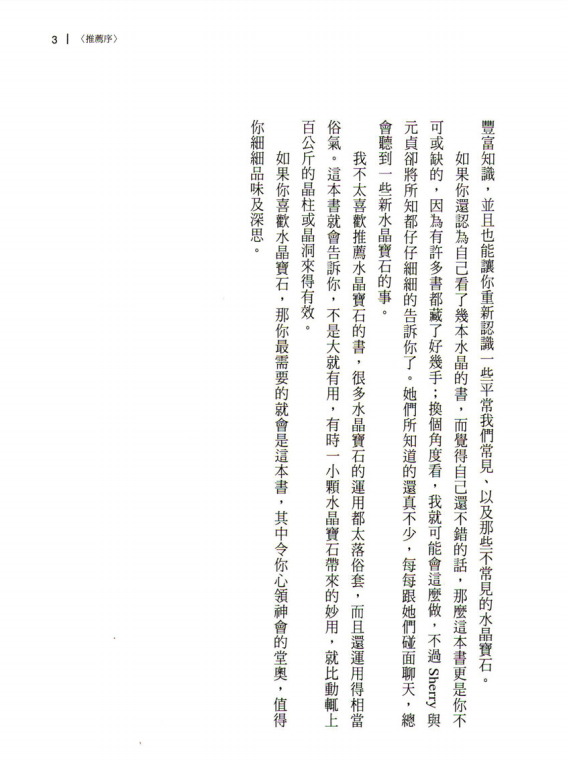 3 | 〈推薦序〉
豐富知識，並且也能讓你重新認識一些平常我們常見、以及那些不常見的水晶寶石。
如果你還認為自己看了幾本水晶的書，而覺得自己還不錯的話，那麼這本書更是你不
可或缺的，因為有許多書都藏了好幾手；換個角度看，我就可能會這麼做，不過 Sherry 與
元貞卻將所知都仔仔細細的告訴你了。她們所知道的還真不少，每每跟她們碰面聊天，總
會聽到一些新水晶寶石的事。
我不太喜歡推薦水晶寶石的書，很多水晶寶石的運用都太落俗套，而且還運用得相當
俗氣。這本書就會告訴你，不是大就有用，有時一小顆水晶寶石帶來的妙用，就比動輒上
百公斤的晶柱或晶洞來得有效。
如果你喜歡水晶寶石，那你最需要的就會是這本書，其中令你心領神會的堂奧，值得
你細細品味及深思。